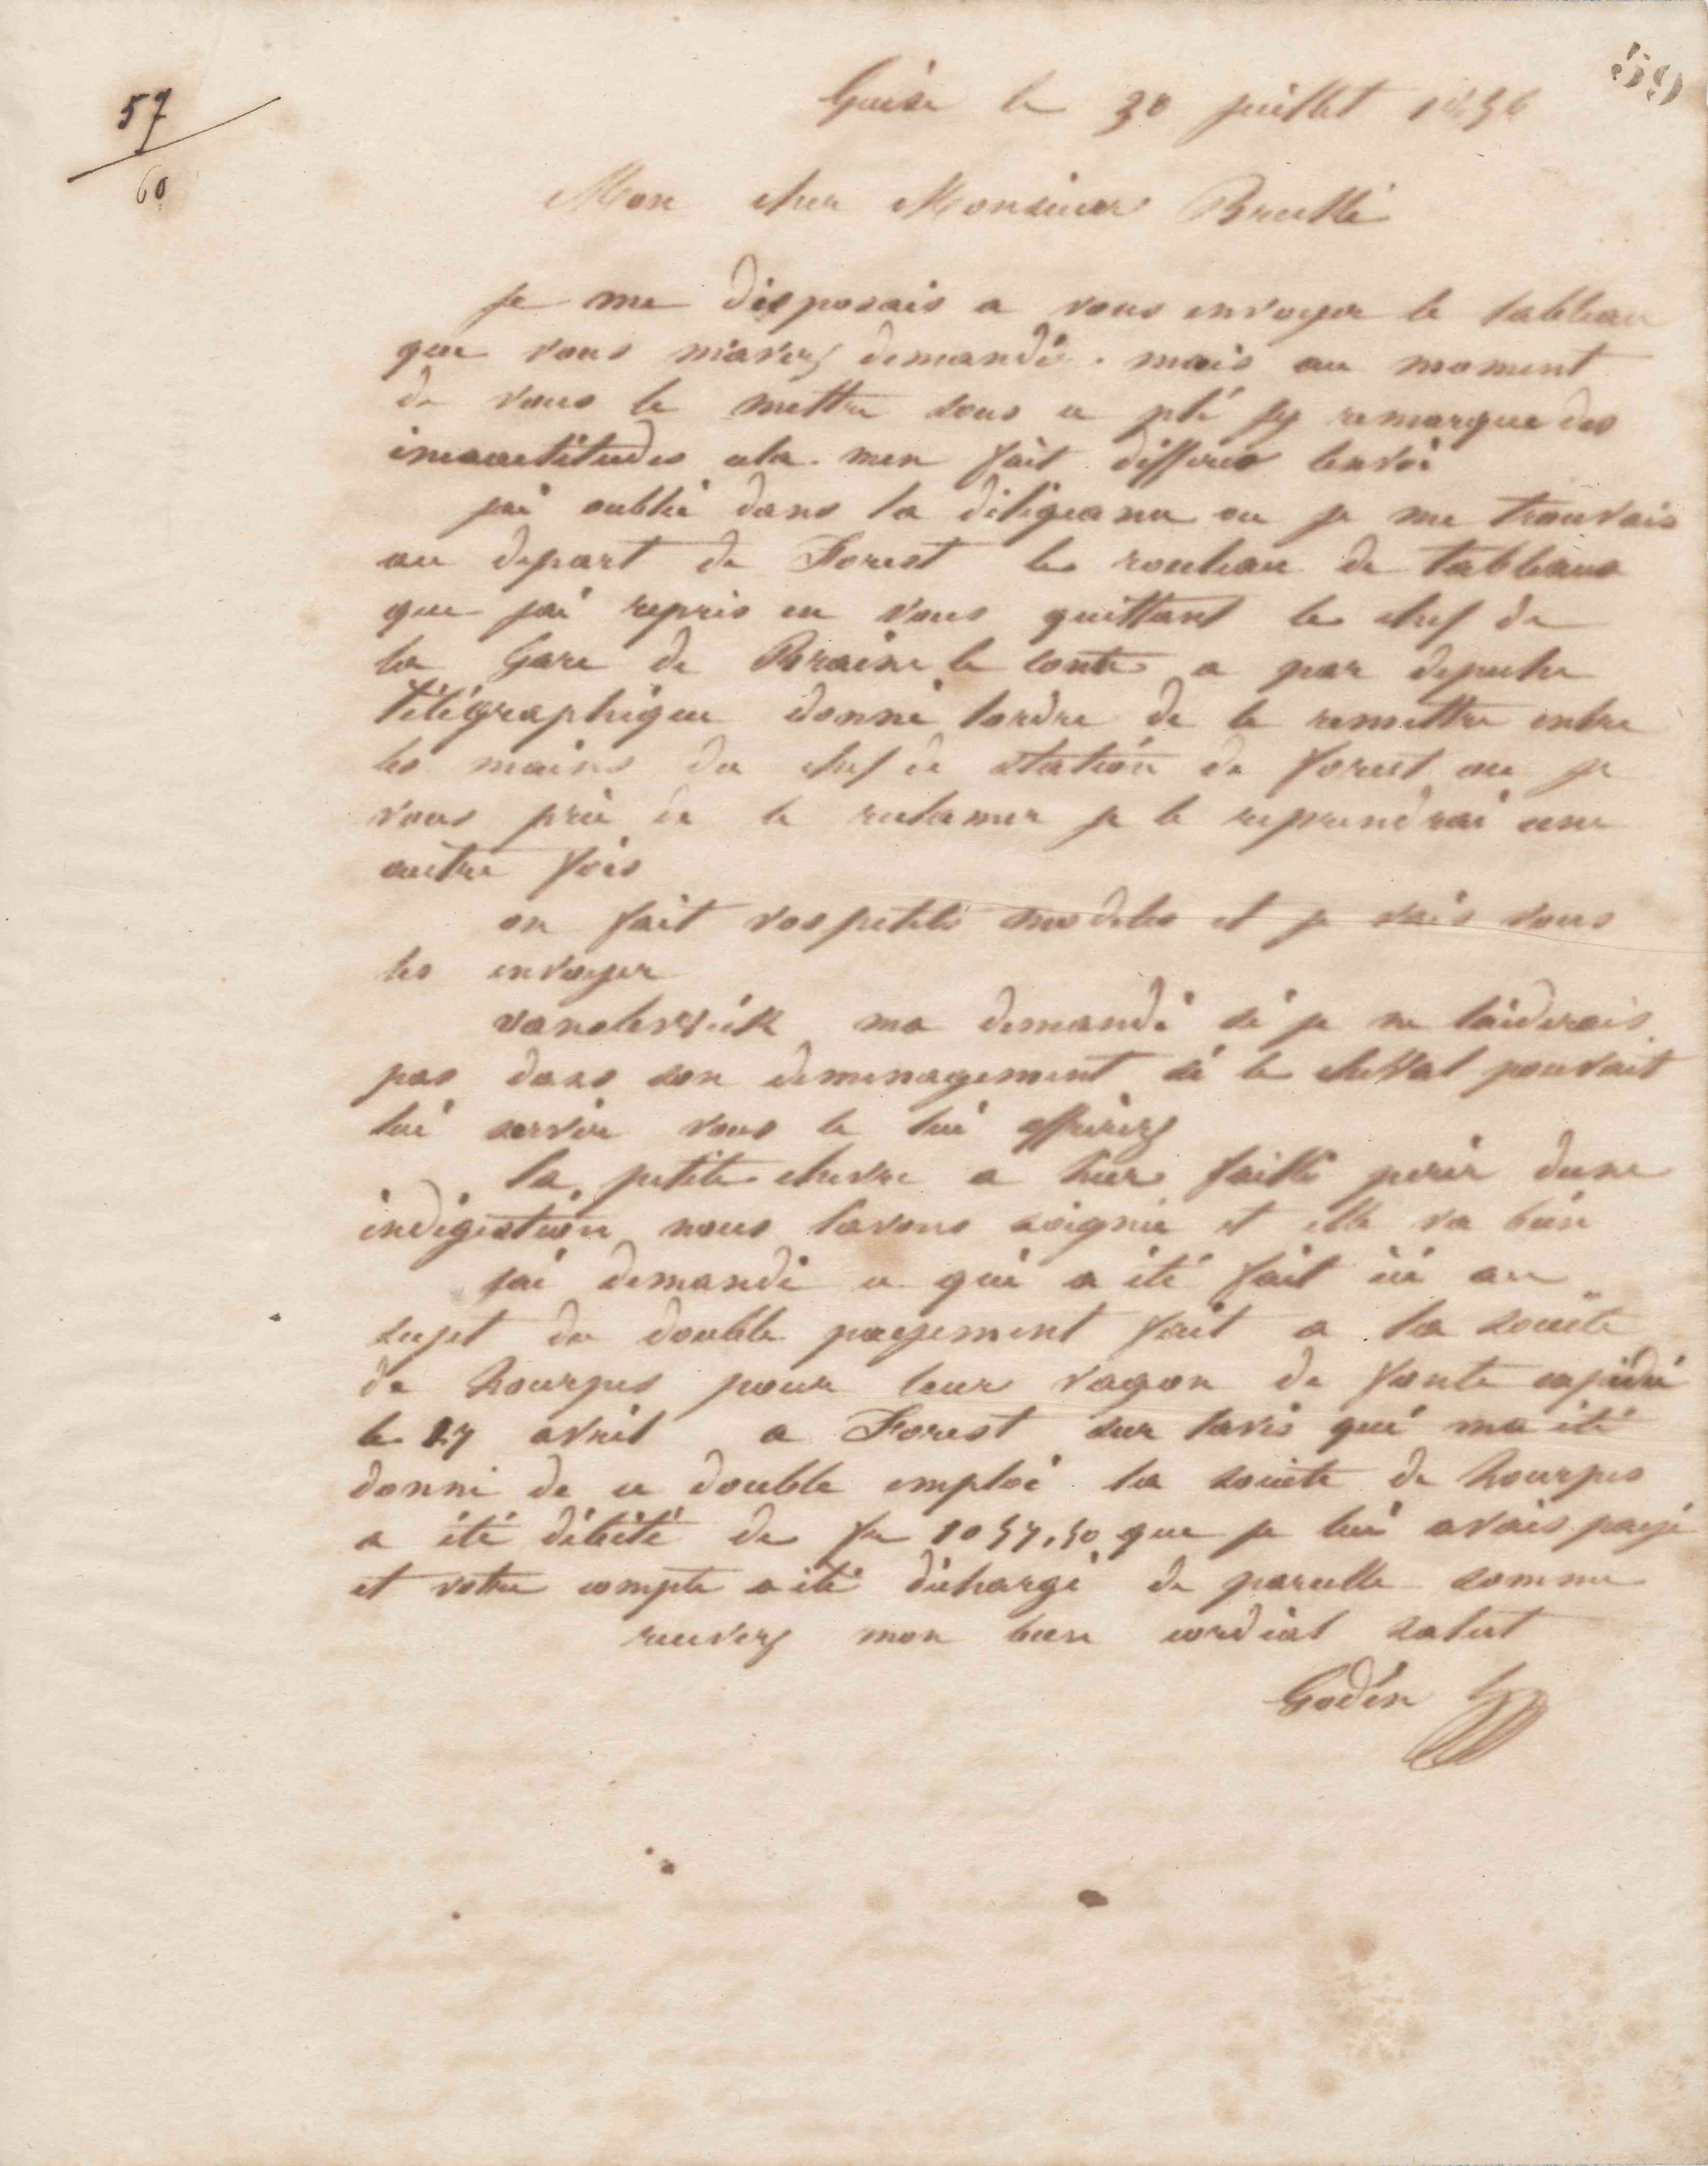 59
57
60
Guise le 30 juillet 1856
Mon cher Monsieur Brullé
je me disposais a vous envoyer le tableau
que vous m'avez demandé. mais au moment
de vous le mettre sous ce pli jy remarque des
inexactitudes cela men fait differer lenvoi
jai oublié dans la diligeance ou je me trouvais
au depart de Forest le rouleau de tableaux
que jai repris en vous quittant le chef de
la Gare de Braine le conte a par depeche
télégraphique donné lordre de le remettre entre
les mains du chef de station de forest ou je
vous prie de le reclamer je le reprendrai une
autre fois
on fait vos petits modeles et je vais vous
les envoyer
ma demandé si je ne laiderais
pas dans son demenagement si le cheval pouvait
lui servir vous le lui offrirez
la petite chevre a hier failli perir dune
indigestion nous lavons soignée et elle va bien
jai demandé ce qui a été fait ici au
sujet du double payement fait a la societe
de hourpes pour leur vagon de fonte expédié
le 27 avril a Forest sur lavis qui ma été
donné de ce double emploi la societe de hourpes
a été débité de fr 1057,50 que je lui avais payé
et votre compte a été déchargé de pareille somme
recevez mon bien cordial salut
Godin